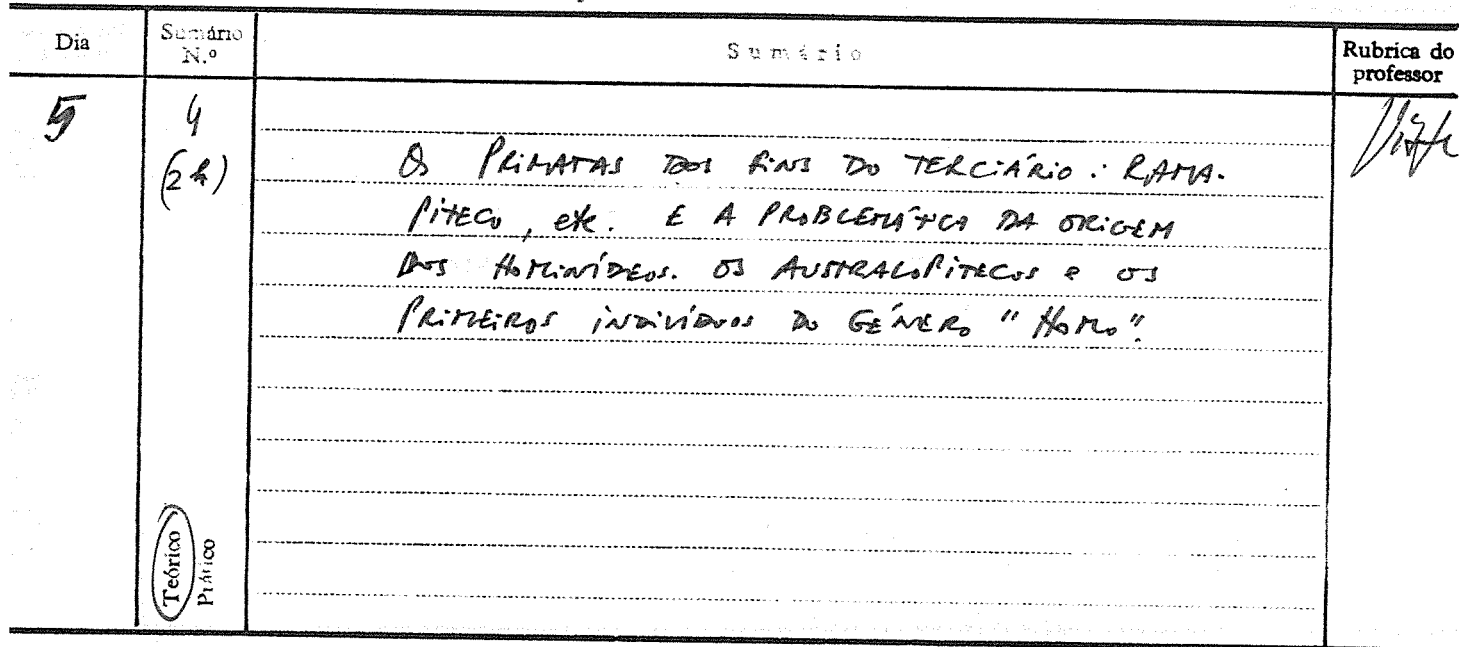 Dia
Sumário
N.º
Sumário
Rubrica do
professor
5
4
(2h)
Os PRIMATAS DOS FINS DO TERCIÁRIO: RAMA-
PITECO, etc. E A PROBLEMÁTICA DA ORIGEM
DOS HOMINÍDEOS. OS AUSTRALOPITECOS e OS
PRIMEIROS INDIVÍDUOS DO GÉNERO "HOMO".
Teórico
Prático